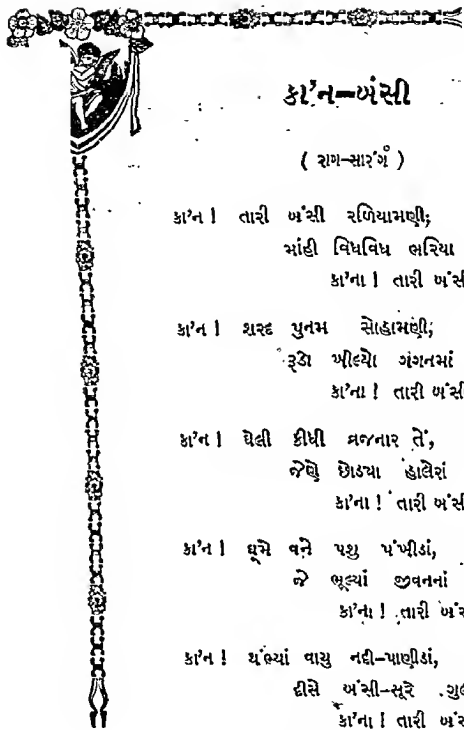 કા'ન–બંસી
( રાગ–સારંગ )
કા'ન ! તારી બંસી રળિયામણી;
માંહી વિધવિધ ભરિયા
કા'ના ! તારી બંસી
કા'ન ! શરદ પુનમ સોહામણી;
રૂડો ખીલ્યો ગગનમાં
કા'ના ! તારી બંસી
કા'ન ! ઘેલી કીધી વ્રજનાર તેં,
જેણે છોડ્યા હાલેરાં
કા'ના ! તારી બંસી
કા'ન ! ઘૂમે વને પશુ પંખીડાં,
જે ભૂલ્યાં જીવનનાં
કા'ના ! તારી
કા'ન ! થંભ્યાં વાયુ નદી–પાણીડાં,
દીસે બંસી–સૂરે
કા'ના ! તારી